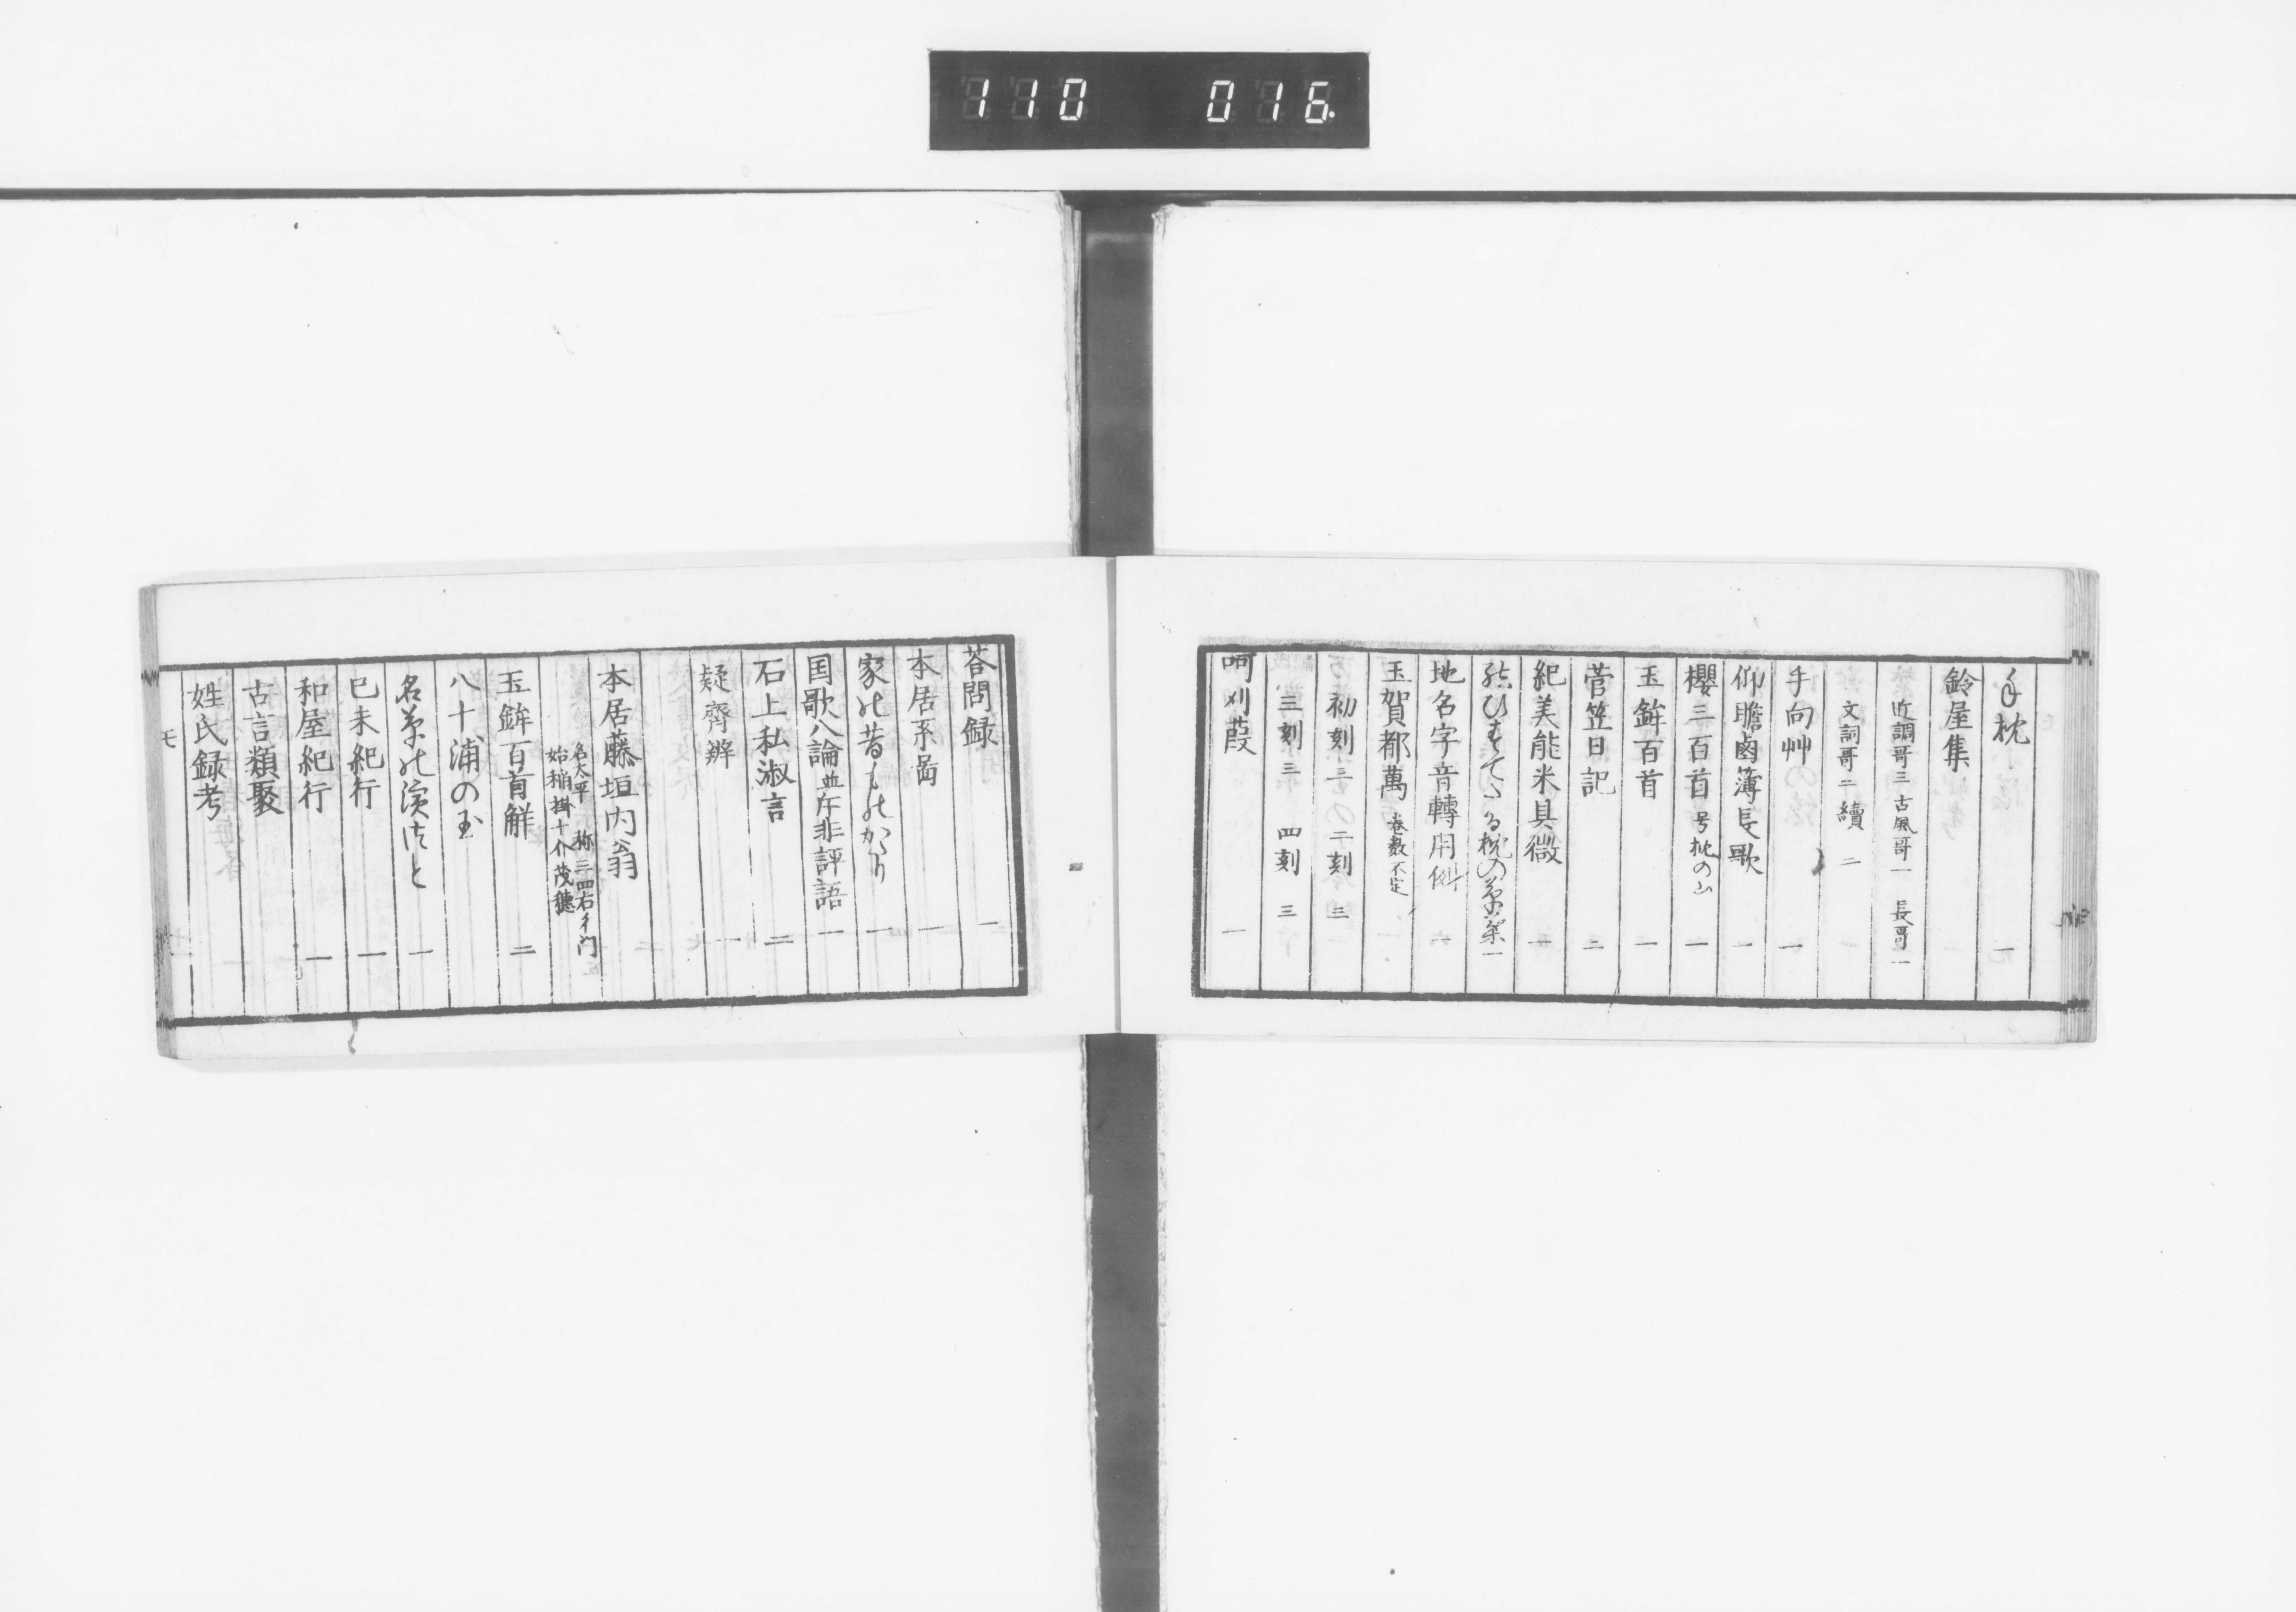 110 016
手枕 一
鈴屋集
近調哥三 古風哥一 長哥一
文詞哥二 續二
手向艸 一
仰瞻鹵簿長歌 一
櫻三百首 号枕の山 一
玉鉾百首 一
菅笠日記 二
紀美能米具微 一
結ひすてたる枕の草葉 一
地名字音轉用例
玉賀都萬 巻数不定
初刻三 二刻三
三刻三 四刻三
呵刈葭 一
荅問録 一
本居系圖 一
家の昔ものかたり 一
国歌八論並斥非評語 一
石上私淑言 二
疑齊辨 一
本居藤垣内翁
名大平 称三四右衛門
始稲掛十介茂穂
玉鉾百首解 二
八十浦の玉
名草の濱つと 一
已未紀行 一
和屋紀行 一
古言類聚
姓氏録考
モ